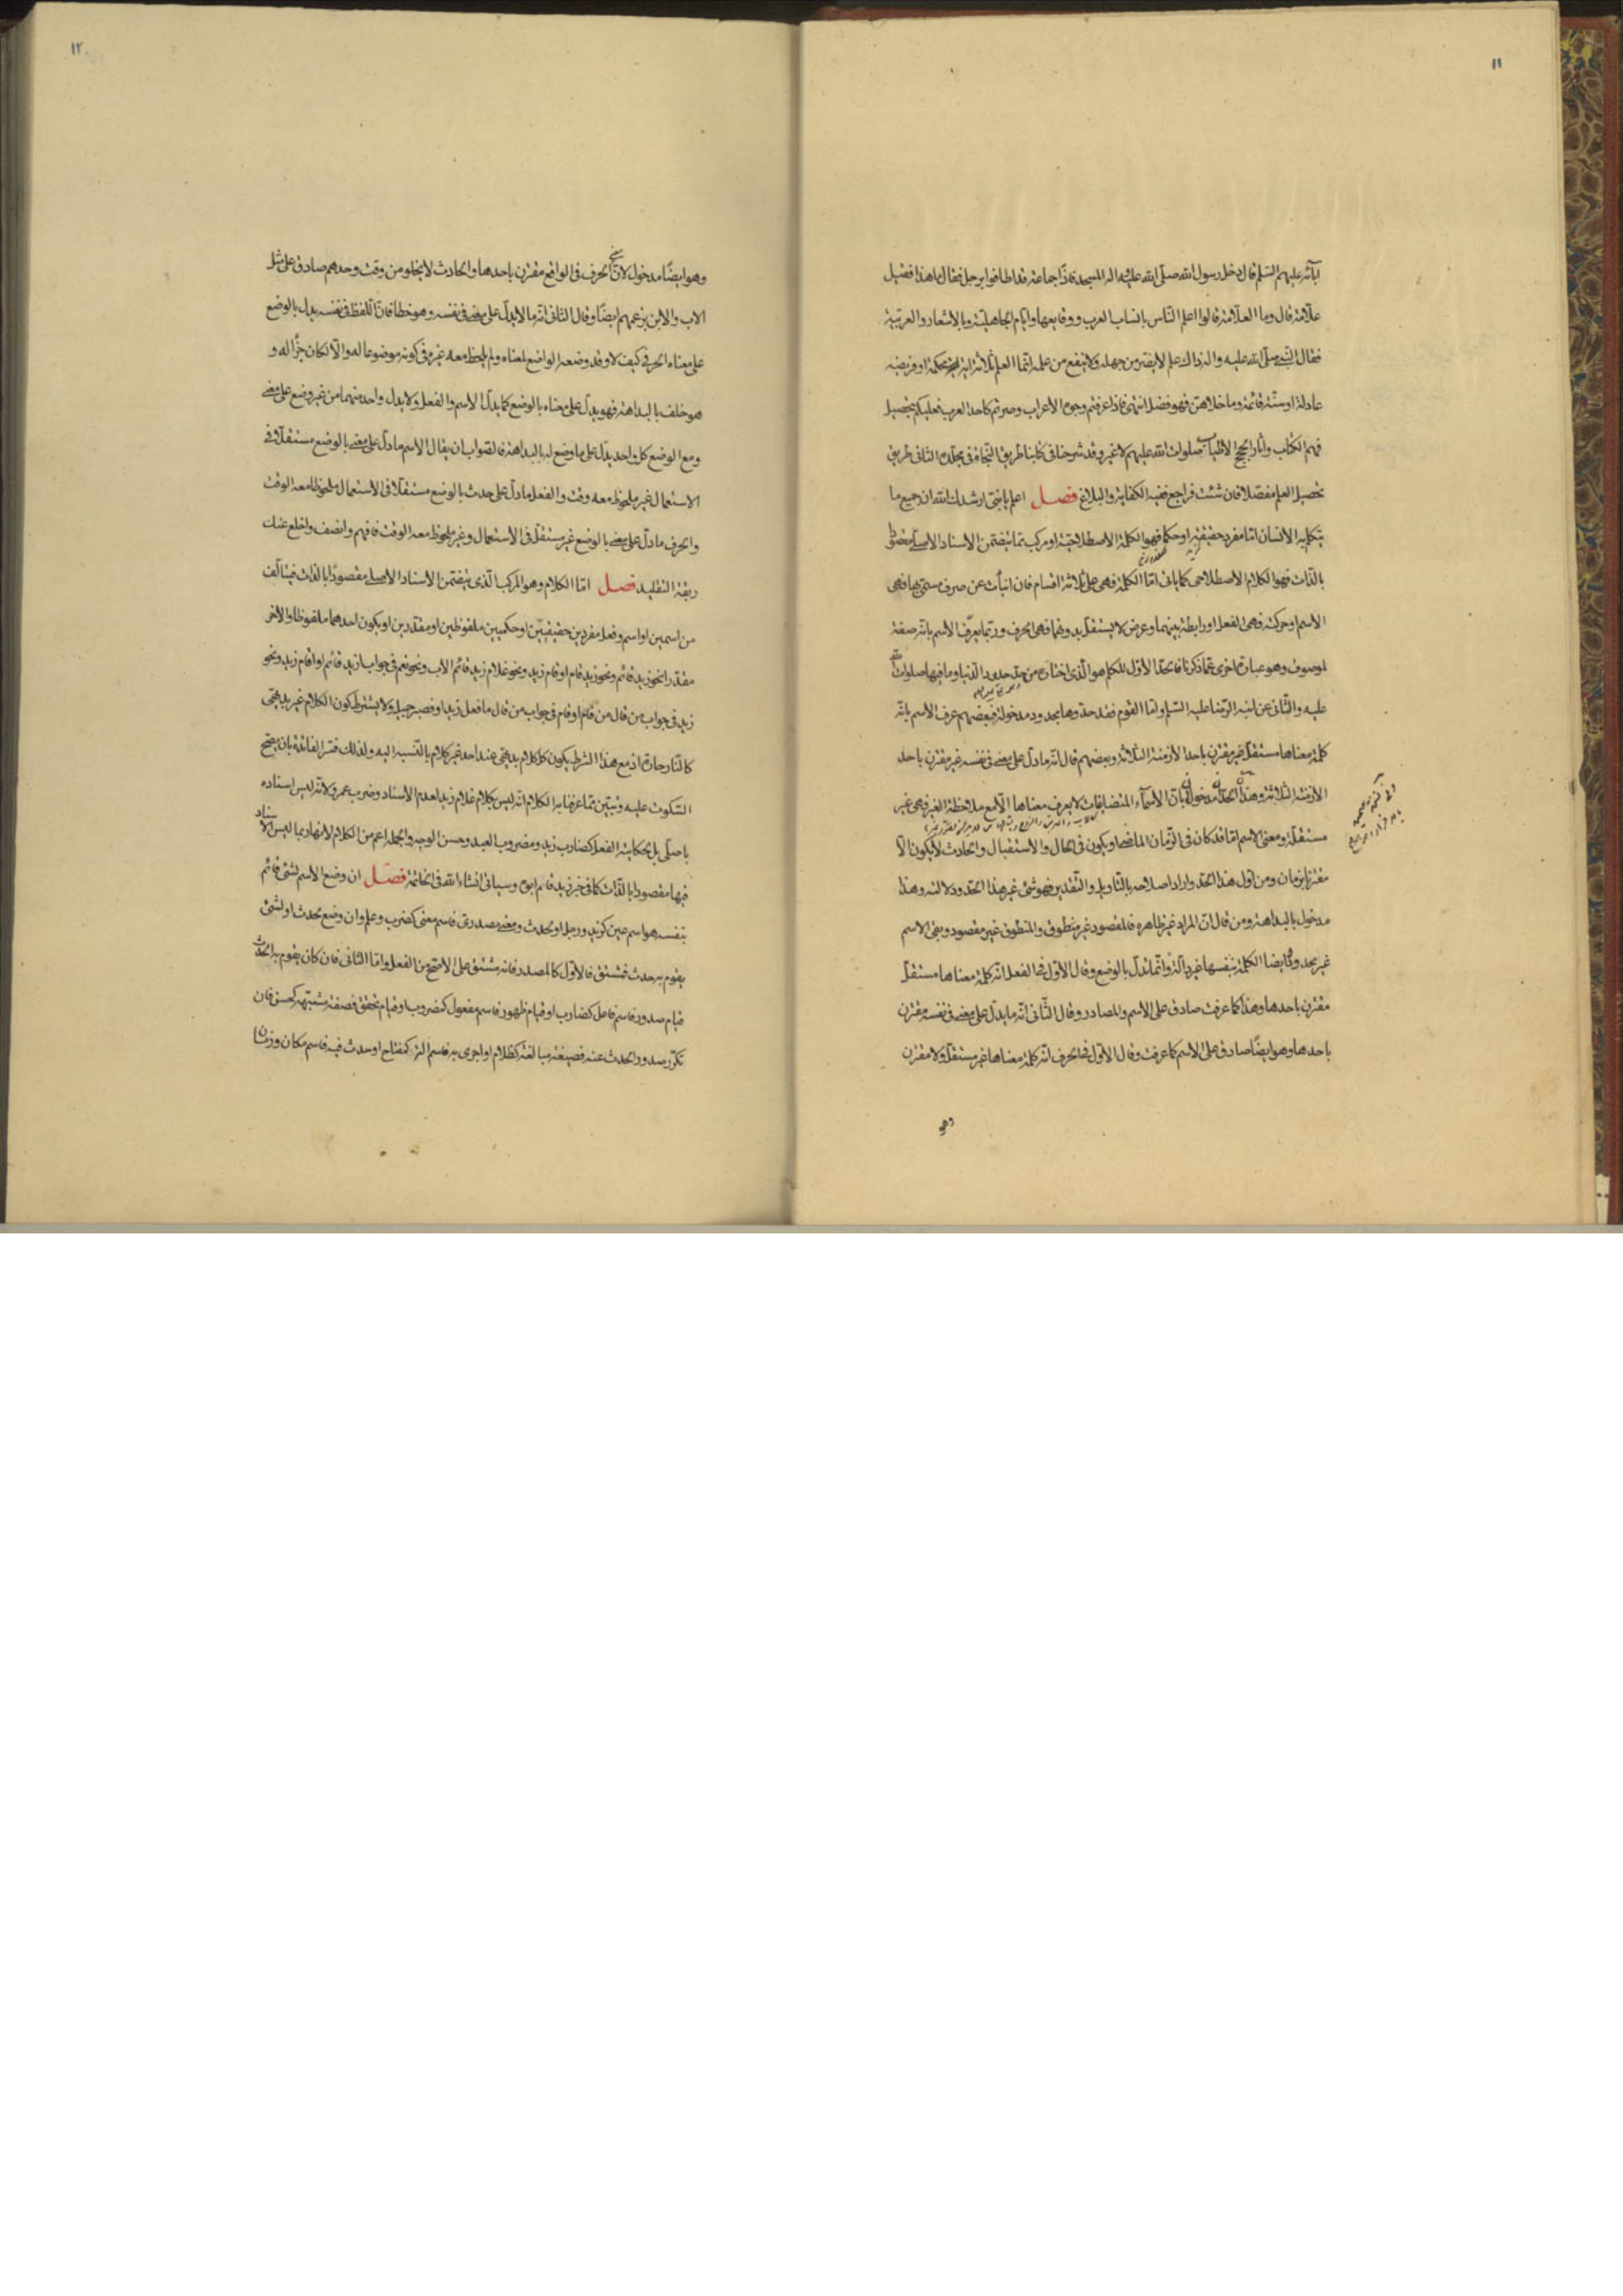 ١١
آبائه عليهم السلم قال دخل رسول الله صلى الله عليه واله المسجد فاذا جماعة قد اطافوا برجل فقال ما هذا فقيل
علامة قال وما العلامة قالوا اعلم الناس بانساب العرب ووقايعها وايام الجاهلية وبالاشعار والعربية
فقال النبي صلى الله عليه واله ذاك علم لا يضر من جهله ولا ينفع من علمه انما العلم ثلاثة اية محكمة او فريضة
عادلة او سنة قائمة وما خلاهن فهو فضل انتهى فاذا عرفتم وجوه الأعراب وصرتم كاحد العرب فعليكم بتحصيل
فهم الكتاب واثار الحجج الاطياب صلوات الله عليهم لا غير وقد شرحنا في كتابنا طريق النجاة في مجلده الثاني طريق
تحصيل العلم مفصلا فان شئت فراجع ففيه الكفاية والبلاغ فصل اعلم يا بني ارشدك الله ان جميع ما
يتكلم به الانسان اما مفرد حقيقة او حكما فهو الكلمة الاصطلاحية او مركب مما يتضمن الاسناد الاصلي مقصودا
بالذات فهو الكلام الاصطلاحي كما ياتي اما الكلمة فهي على ثلاثة اقسام فان انبأت عن صرف مسمى بها فهي
الاسم او حركته فهي الفعل او رابطة بينهما وعرض لا يستقل بدونهما فهي الحرف وربما يعرف الاسم بانه صفة
لموصوف وهو عبارة اخرى عما ذكرنا فالحد الأول للكلم هو الذي اختاره من حد حدود الدنيا وما فيها صلوات الله
عليه والثاني عن ابنه الرضا عليه السلم واما القوم فقد حدوها بحدود مدخولة فبعضهم عرف الاسم بانه
كلمة معناها مستقل غير مقترن باحد الازمنة الثلاثة وبعضهم قال انه ما دل على معنى في نفسه غير مقترن باحد
الازمنة الثلاثة وهذا الحدان مدخولان بان الأسماء المتضايفات لا يعرف معناها الا مع ملاحظة الغير فهي غير
مستقلة ومعنى الاسم اما قد كان في الزمان الماضي او يكون في الحال والاستقبال والحادث لا يكون الا
مقترنا بزمان ومن اول هذا الحد واراد اصلاحه بالتاويل والتقدير فهو شئ غير هذا الحد ودلالته وهذا
مدخول بالبداهة ومن قال ان المراد غير ظاهره فالمقصود غير منطوق والمنطوق غير مقصود وبقي الاسم
غير محدود وايضا الكلمة بنفسها غير دالة وانما تدل بالوضع وقال الاول في الفعل انه كلمة معناها مستقل
مقترن باحدها وهذا كما عرفت صادق على الاسم والمصادر وقال الثاني انه ما يدل على معنى في نفسه مقترن
باحدها وهو ايضا صادق على الاسم كما عرفت وقال الاول في الحرف انه كلمة معناها غير مستقل ولا مقترن
وهو
١٢
وهو ايضا مدخول لان الحرف في الواقع مقترن باحدها والحادث لا يخلو من وقت وحدهم صادق على مثل
الاب والابن بزعمهم ايضا وقال الثاني انه ما لا يدل على معنى في نفسه وهو خطا فان اللفظ في نفسه يدل بالوضع
على معناه الحرفي كيف لا وقد وضعه الواضع لمعناه ولم يلحظ معه غيره في كونه موضوعا له والا لكان جزأ له و
هو خلف بالبداهة فهو يدل على معناه بالوضع كما يدل الاسم والفعل ولا يدل واحد منهما من غير وضع على معنى
ومع الوضع كل واحد يدل على ما وضع له بالبداهة فالصواب ان يقال الاسم ما دل على معنى بالوضع مستقلا في
الاستعمال غير ملحوظ معه وقت والفعل ما دل على حدث بالوضع مستقلا في الاستعمال ملحوظا معه الوقت
والحرف ما دل على معنى بالوضع غير مستقل في الاستعمال وغير ملحوظ معه الوقت فافهم وانصف واخلع عنك
ربقة التقليد فصل اما الكلام وهو المركب الذي يتضمن الاسناد الاصلي مقصودا بالذات فيتالف
من اسمين او اسم وفعل مفردين حقيقيين او حكميين ملفوظين او مقدرين او يكون احدهما ملفوظا والاخر
مقدرا نحو زيد قائم ونحو زيد قام او قام زيد ونحو غلام زيد قائم الاب ونحو نعم في جواب ازيد قائم او اقام زيد ونحو
زيد في جواب من قال من قام او قام في جواب من قال ما فعل زيد او فصبر جميل ولا يشترط كون الكلام غير بديهي
كالنار حارة اذ مع هذا الشرط يكون كل كلام بديهي عند احد غير كلام بالنسبة اليه ولذلك فسر الفائدة بان يصح
السكوت عليه وتبين مما عرفنا به الكلام انه ليس بكلام غلام زيد لعدم الاسناد وضرب عمرو لانه ليس اسناده
باصلي بل بحكاية الفعل كضارب زيد ومضروب العبد وحسن الوجه والجملة اعم من الكلام لانها ربما ليس الاسناد
فيها مقصودا بالذات كما في خبر زيد قام ابوه وسياتي انشاء الله في الخاتمة فصل ان وضع الاسم لشئ قائم
بنفسه هو اسم عين كزيد ورجل او لحدث ومعنى مصدري فاسم معنى كضرب وعلم وان وضع لحدث او لشئ
يقوم به حدث فمشتق فالاول كالمصدر فانه مشتق على الاصح من الفعل واما الثاني فان كان يقوم به الحدث
قيام صدور فاسم فاعل كضارب او قيام ظهور فاسم مفعول كمضروب او قيام تحقق فصفة مشبهة كحسن فان
تكرر صدور الحدث عنه فصيغة مبالغة كظلام او اجرى به فاسم الة كمفتاح او حدث فيه فاسم مكان وزمان